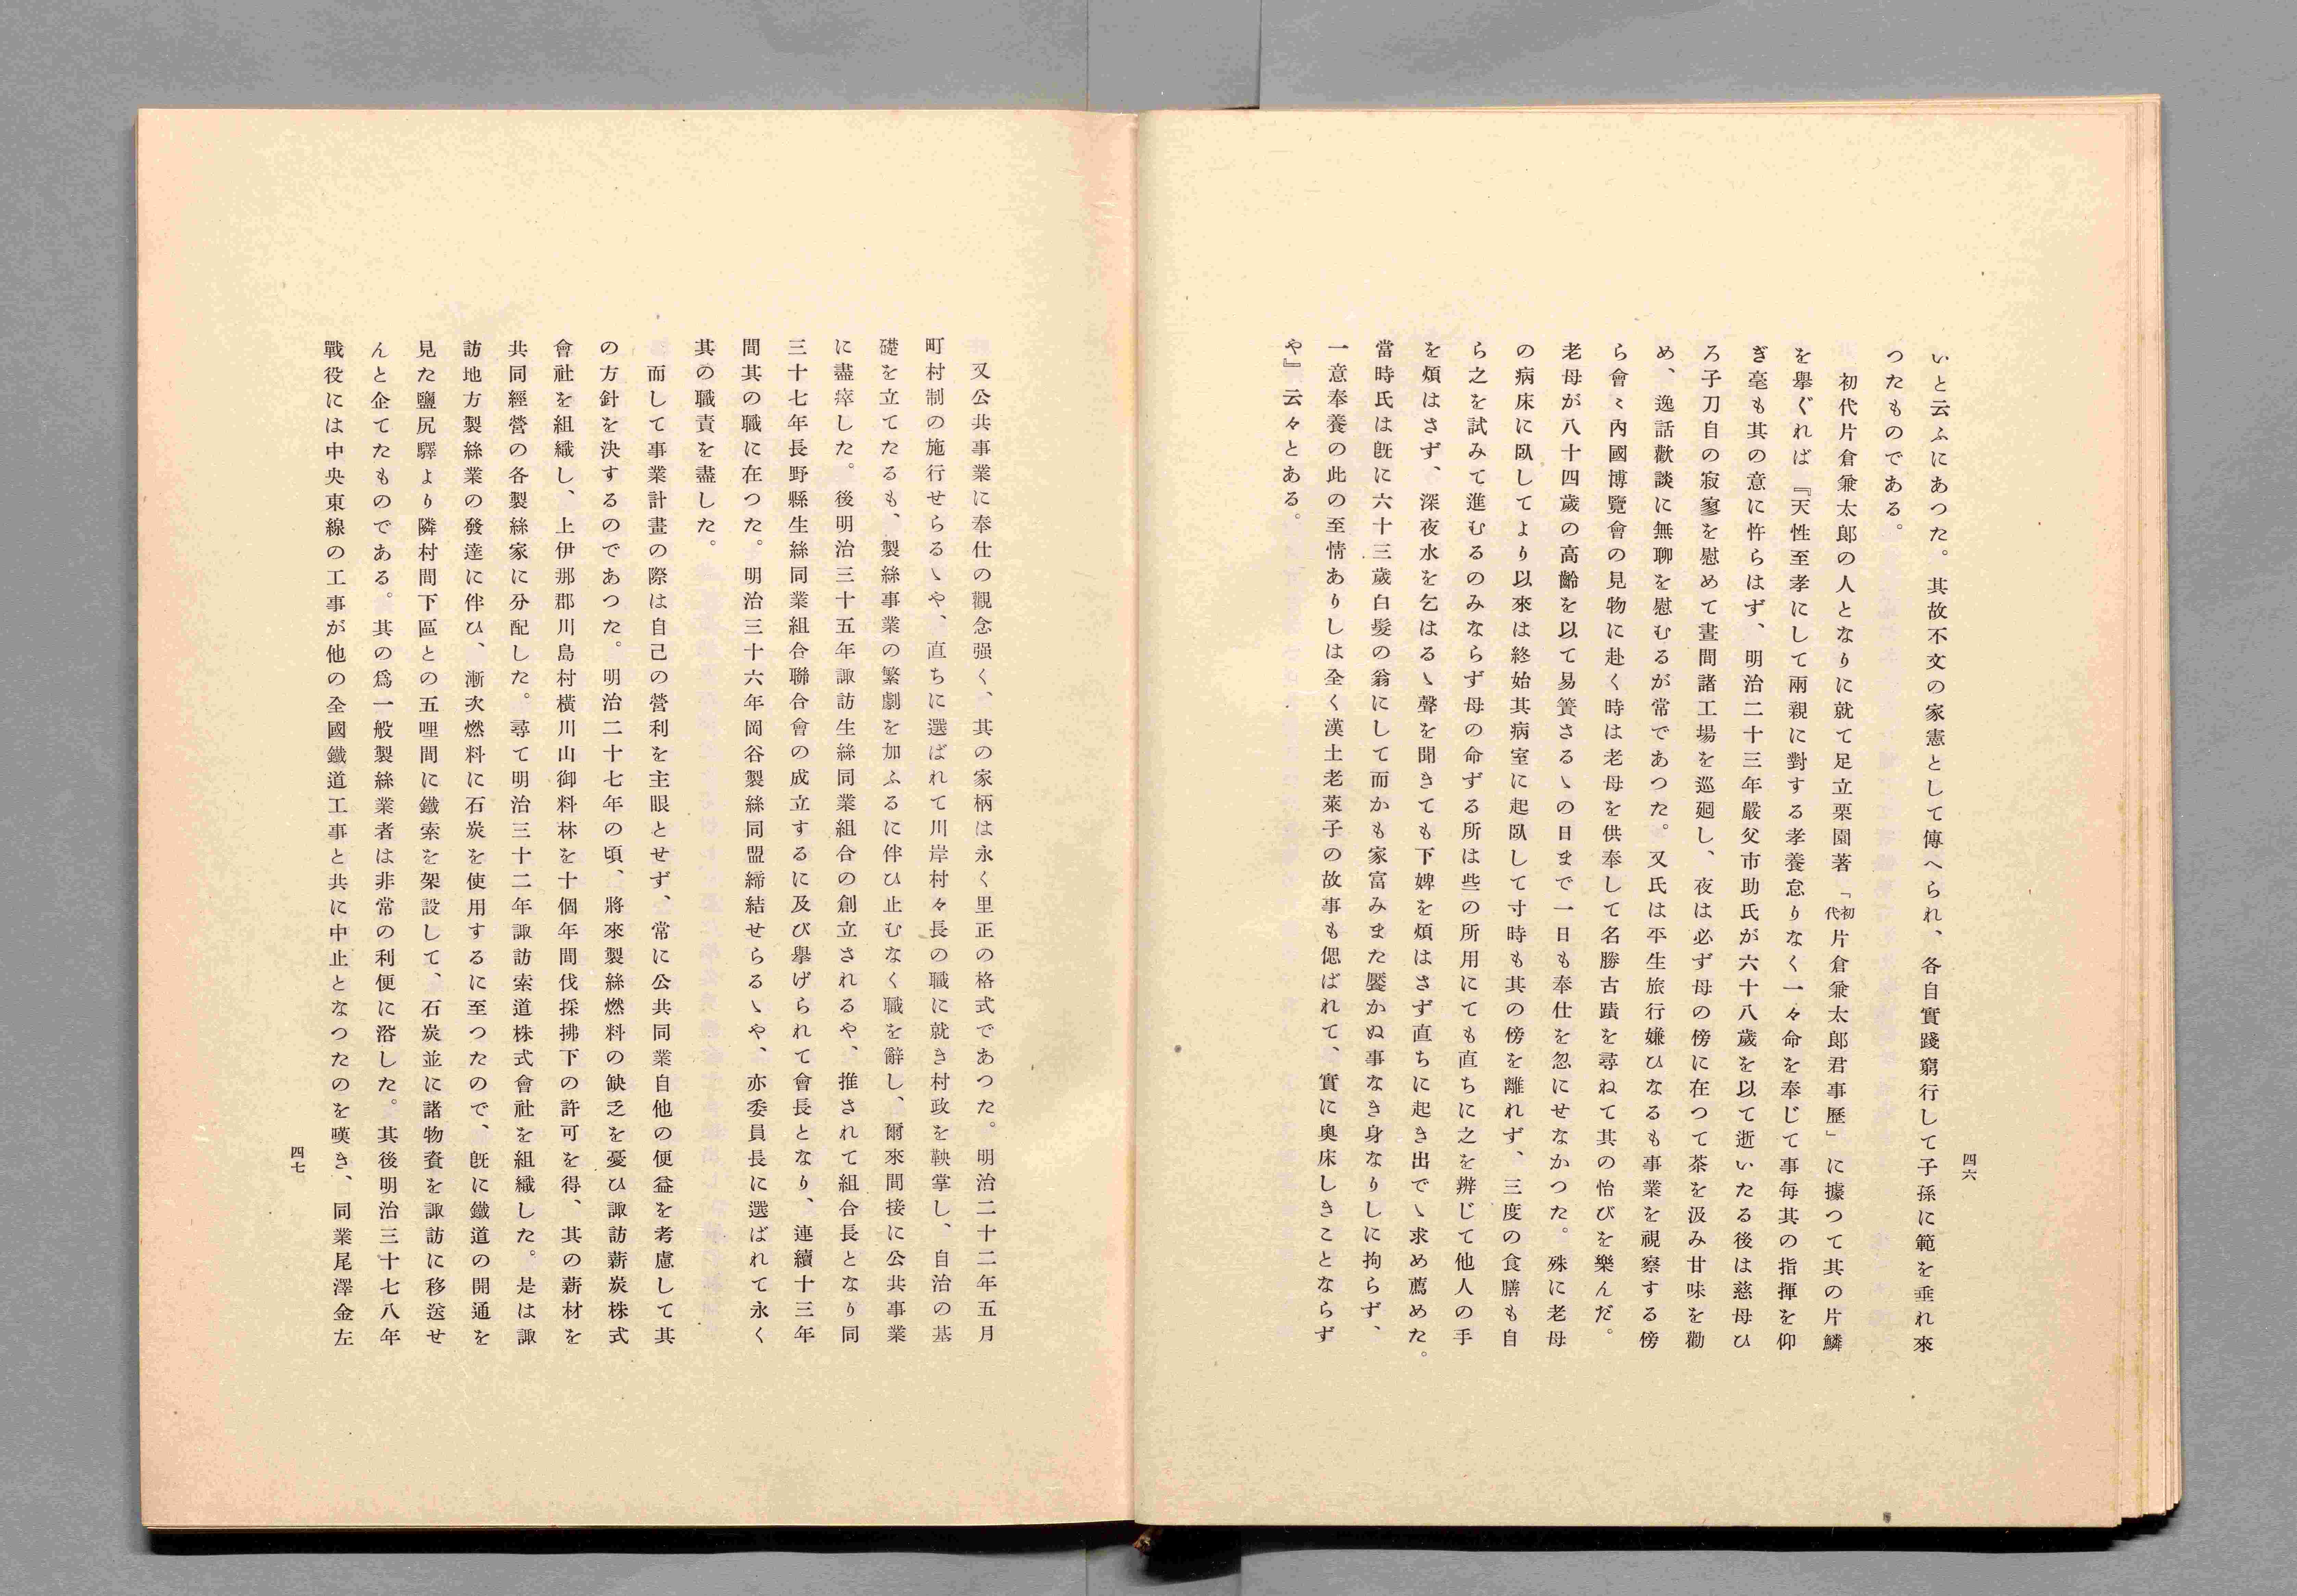 四六
いと云ふにあつた。其故不文の家憲として傳へられ、各自實踐窮行して子孫に範を垂れ來
つたものである。
初代片倉兼太郎の人となりに就て足立栗園著「初代片倉兼太郎君事歷」に據つて其の片鱗
を擧ぐれば『天性至孝にして兩親に對する孝養怠りなく一々命を奉じて事每其の指揮を仰
ぎ毫も其の意に忤らはず、明治二十三年嚴父市助氏が六十八歲を以て逝いたる後は慈母ひ
ろ子刀自の寂寥を慰めて晝間諸工場を巡廻し、夜は必ず母の傍に在つて茶を汲み甘味を勸
め、逸話歡談に無聊を慰むるが常であつた。又氏は平生旅行嫌ひなるも事業を視察する傍
ら會〻內國博覽會の見物に赴く時は老母を供奉して名勝古蹟を尋ねて其の怡びを樂んだ。
老母が八十四歲の高齡を以て易簀さるゝの日まで一日も奉仕を忽にせなかつた。殊に老母
の病床に臥してより以來は終始其病室に起臥して寸時も其の傍を離れず、三度の食膳も自
ら之を試みて進むるのみならず母の命ずる所は些の所用にても直ちに之を辨じて他人の手
を煩はさず、深夜水を乞はるゝ聲を聞きても下婢を煩はさず直ちに起き出でゝ求め薦めた。
當時氏は旣に六十三歲白髮の翁にして而かも家富みまた饜かぬ事なき身なりしに拘らず、
一意奉養の此の至情ありしは全く漢土老萊子の故事も偲ばれて、實に奧床しきことならず
や』云々とある。
又公共事業に奉仕の觀念强く、其の家柄は永く里正の格式であつた。明治二十二年五月
町村制の施行せらるゝや、直ちに選ばれて川岸村々長の職に就き村政を鞅掌し、自治の基
礎を立てたるも、製絲事業の繁劇を加ふるに伴ひ止むなく職を辭し、爾來間接に公共事業
に盡瘁した。後明治三十五年諏訪生絲同業組合の創立されるや、推されて組合長となり同
三十七年長野縣生絲同業組合聯合會の成立するに及び擧げられて會長となり、連續十三年
間其の職に在つた。明治三十六年岡谷製絲同盟締結せらるゝや、亦委員長に選ばれて永く
其の職責を盡した。
而して事業計畫の際は自己の營利を主眼とせず、常に公共同業自他の便益を考慮して其
の方針を決するのであつた。明治二十七年の頃、將來製絲燃料の缺乏を憂ひ諏訪薪炭株式
會社を組織し、上伊那郡川島村橫川山御料林を十個年間伐採拂下の許可を得、其の薪材を
共同經營の各製絲家に分配した。尋て明治三十二年諏訪索道株式會社を組織した。是は諏
訪地方製絲業の發達に伴ひ、漸次燃料に石炭を使用するに至つたので、旣に鐵道の開通を
見た鹽尻驛より隣村間下區との五哩間に鐵索を架設して、石炭並に諸物資を諏訪に移送せ
んと企てたものである。其の爲一般製絲業者は非常の利便に浴した。其後明治三十七八年
戰役には中央東線の工事が他の全國鐵道工事と共に中止となつたのを嘆き、同業尾澤金左
四七